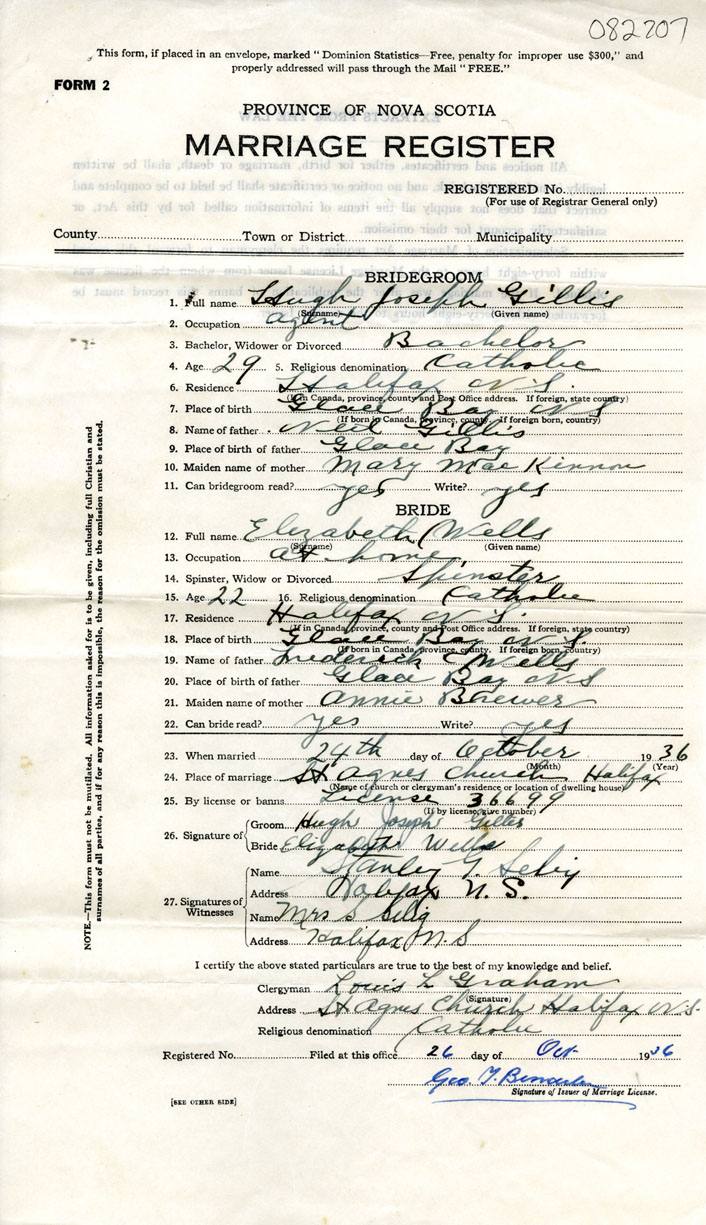 082207
This form, if placed in an envelope, marked "Dominion Statistics—Free, penalty for improper use $300," and
properly addressed will pass through the Mail "FREE."
FORM 2
PROVINCE OF NOVA SCOTIA
MARRIAGE REGISTER
REGISTERED No.
(For use of Registrar General only)
County Town or District Municipality
BRIDEGROOM
1. Full name Hugh Joseph Gillis
(Surname) (Given name)
2. Occupation agent
3. Bachelor, Widower or Divorced Bachelor
4. Age 29 5. Religious denomination Catholic
6. Residence Halifax N.S.
(If in Canada, province, county and Post Office address. If foreign, state country)
7. Place of birth Glace Bay NS
(If born in Canada, province, county. If foreign born, country)
8. Name of father Neil Gillis
9. Place of birth of father Glace Bay
10. Maiden name of mother Mary MacKinnon
11. Can bridegroom read? yes Write? yes
BRIDE
12. Full name Elizabeth Wells
(Surname) (Given name)
13. Occupation at home
14. Spinster, Widow or Divorced Spinster
15. Age 22 16. Religious denomination Catholic
17. Residence Halifax N.S.
(If in Canada, province, county and Post Office address. If foreign, state country)
18. Place of birth Glace Bay N S
(If born in Canada, province, county. If foreign born, country)
19. Name of father Frederick Wells
20. Place of birth of father Glace Bay N S
21. Maiden name of mother Annie Brewer
22. Can bride read? yes Write? yes
23. When married 24th day of October 1936
(Month) (Year)
24. Place of marriage St Agnes Church Halifax
(Name of church or clergyman's residence or location of dwelling house)
25. By license or banns License 36699
(If by license, give number)
26. Signature of
Groom Hugh Joseph Gillis
Bride Elizabeth Wells
27. Signatures of Witnesses
Name Stanley G.
Address Halifax N.S.
Name Mrs S
Address Halifax N.S
I certify the above stated particulars are true to the best of my knowledge and belief.
Clergyman Louis L Graham
(Signature)
Address St Agnes Church Halifax N.S.
Religious denomination Catholic
Registered No. Filed at this office 26 day of Oct 1936
Geo. T.
Signature of Issuer of Marriage License.
[SEE OTHER SIDE]
NOTE.—This form must not be mutilated. All information asked for is to be given, including full Christian and
surnames of all parties, and if for any reason this is impossible, the reason for the omission must be stated.